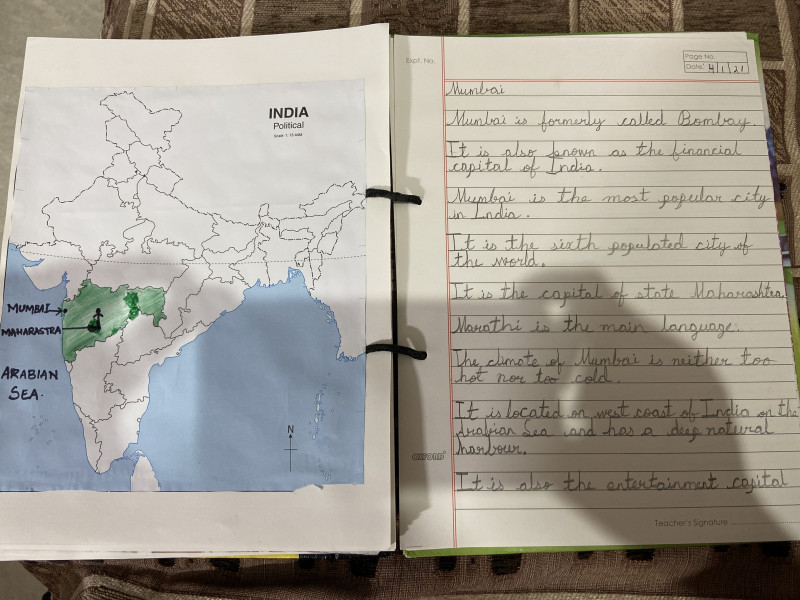 INDIA
Political
Scale 1: 15.46M
MUMBAI
MAHARASTRA
ARABIAN
SEA.
N
Expt. No.
Page No.
Date 4/1/21
Mumbai
Mumbai is formerly called Bombay.
It is also known as the financial
capital of India.
Mumbai is the most popular city
in India.
It is the sixth populated city of
the world.
It is the capital of state Maharashtra.
Marathi is the main language.
The climate of Mumbai is neither too
hot nor too cold.
It is located on west coast of India on the
Arabian Sea and has a deep natural
harbour.
It is also the entertainment capital
OXFORD
Teacher's Signature